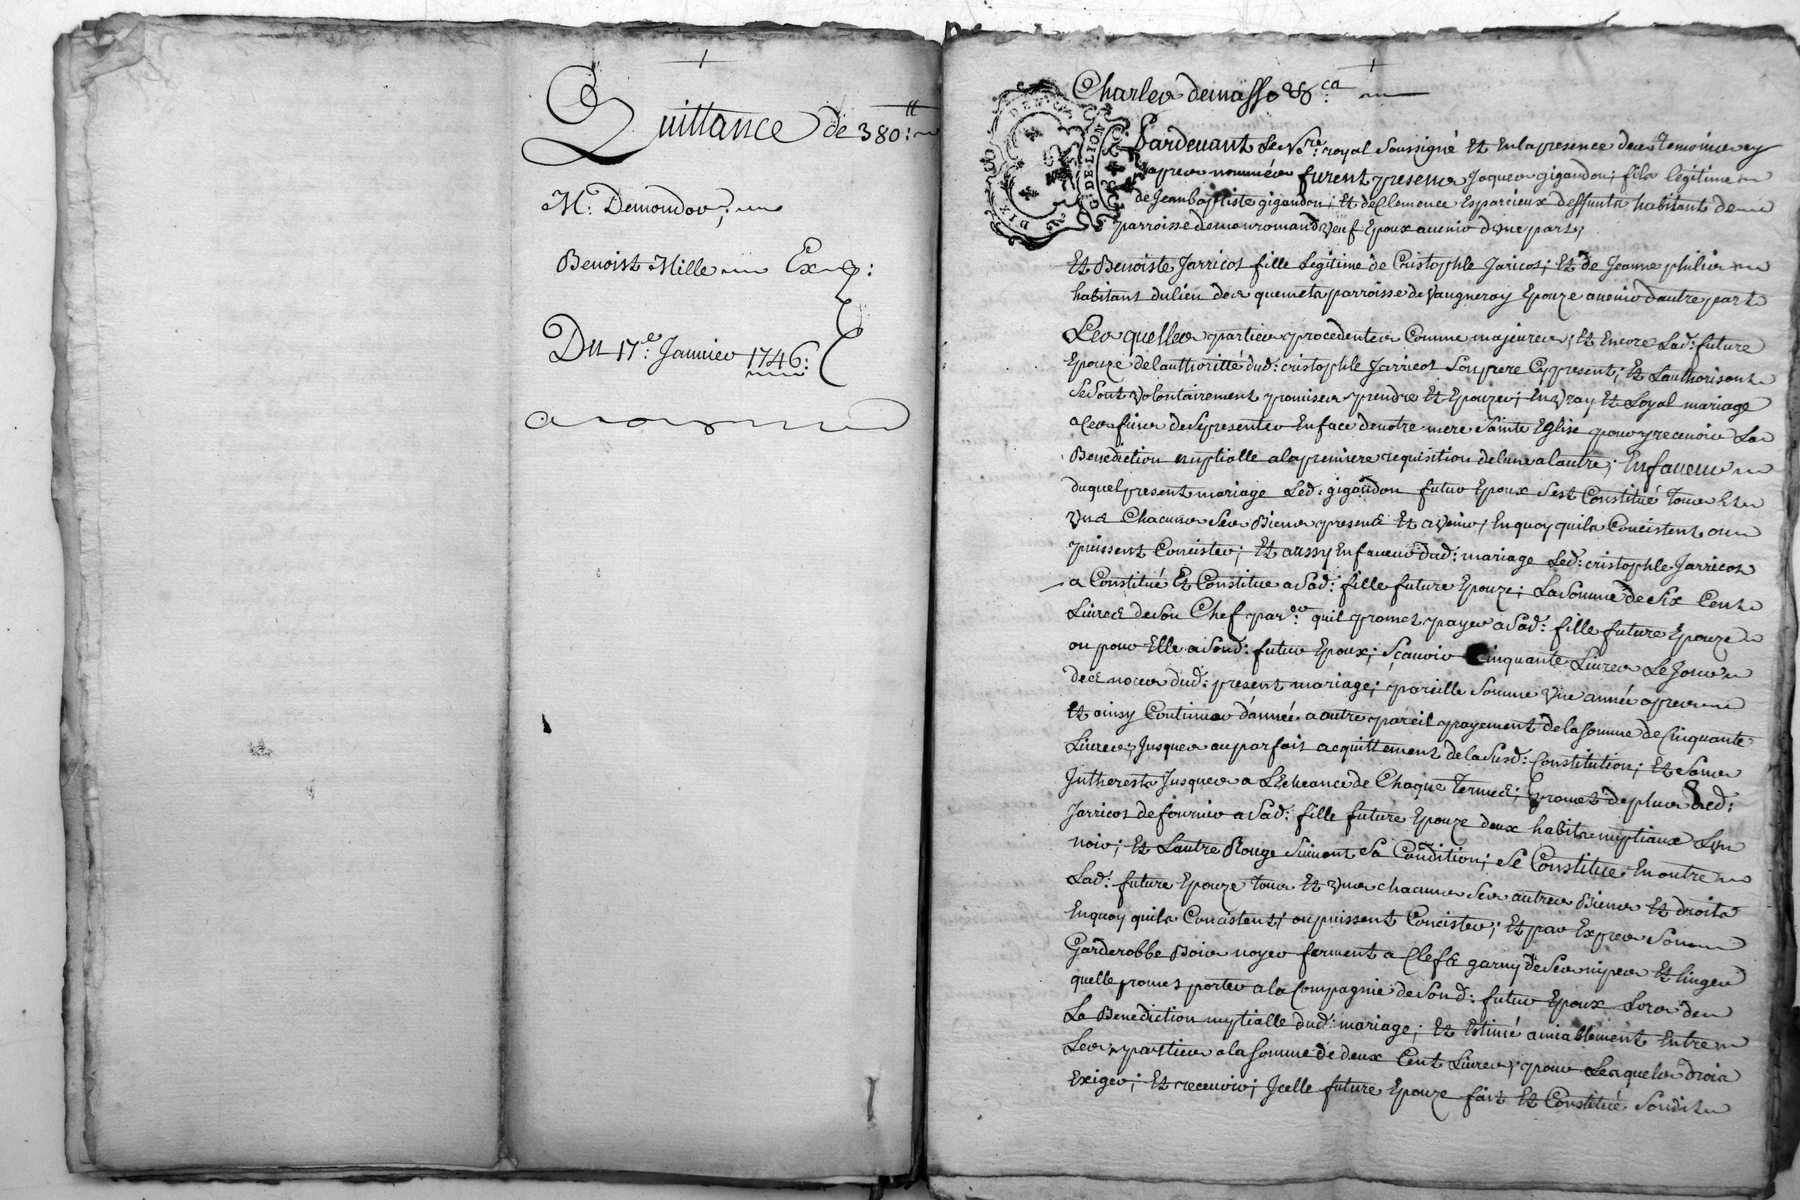 Quittance de 380:tt
Mr: Demondor;
Benoist Mille Exr:
Du 17e: Janvier 1746:
Charles demasso &ca
DE LION
DIX
Pardevant Le No.re royal Soussigné Et Enlapresence des temoins cy
apres nommés furent presens Jaques gigandon; fils legitime
de Jeanbaptiste gigandon; Et de Clemence Esparcieux deffunts habitant de
parroisse demonromand veuf Epoux avenir d'une part,
Et Benoiste Jarricot fille Legitime de Cristophle Jaricot; Et de Jeanne philis
habitant du lien des quemets parroisse de Vaugneray Epouze avenir dautre part
Les quelles parties procedentes Comme majeures; Et Encore Lad: future
Epouze delauthoritté dud: cristophle Jarricot Son pere Cy present; Et Lauthorisant
Se Sont volontairement promises prendre Et Epouzer; En vray Et Loyal mariage
a Ces fins de Se presenter En face de notre mere Sainte Eglise pour y recevoir La
Benediction nuptialle alapremiere requisition de lune a lautre; En faveur
duquel present mariage Led: gigandon futur Epoux Sest Constitué tous Et
uns Chacuns Ses Biens presents Et avenir; En quoy quils Concistent ou
puissent Concister; Et aussy En faveur dud: mariage Led: cristophle Jarricot
a Constitué Et Constitue a Sad: fille future Epouze; La Somme de Six Cent
Livres de Son Chef quil promet payer a Sad: fille future Epouze
ou pour Elle a Sond: futur Epoux; Sçauoir Cinquante Livres Le Jour
des noces dud: present mariage; pareille Somme une année apres
Et ainsy Continuer d'année a autre pareil payement de la Somme de Cinquante
Livres Jusques au parfait acquittement de la Susd: Constitution; Et Sans
Inthérests Jusques a L'Echeance de Chaque terme; promet de plus Led:
Jarricot de fournir a Sad: fille future Epouze deux habits nuptiaux L'un
noir; Et Lautre Rouge Suivant Sa Condition; Se Constitue En outre
Lad: future Epouze tous Et uns chacuns Ses autres Biens Et droits
En quoy quils Concistent; ou puissent Concister; Et par Expres Son
Garderobbe Bois noyer fermant a Clefs garny de Ses nipes Et linges
quelle promet porter a la Compagnie de Sond: futur Epoux Lors de
La Benediction nuptialle dud: mariage; Et Estimé amiablement Entre
Les parties a la Somme de deux Cent Livres; pour Lesquels droits
Exiger; Et recevoir; Icelle future Epouze fait Et Constitué Sondit